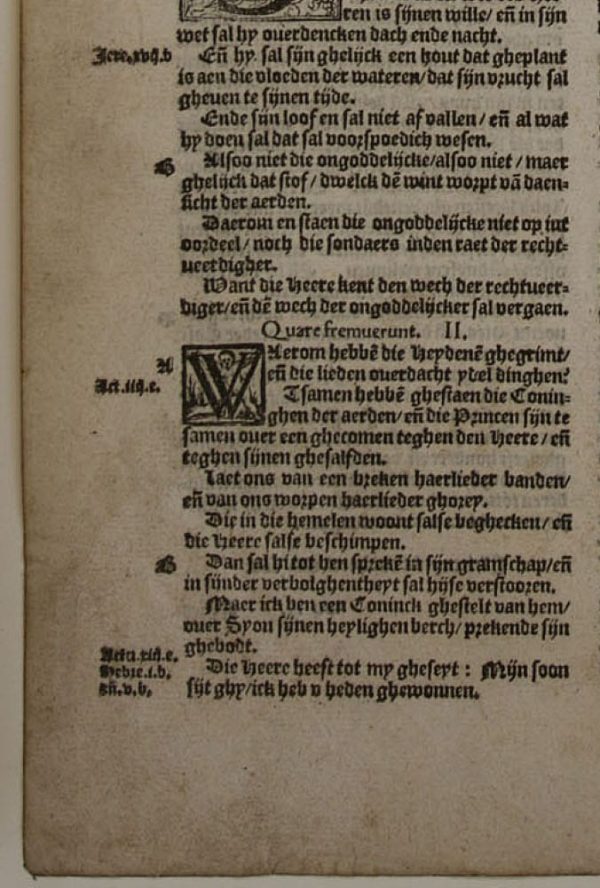 ren is sijnen wille/ eñ in sijn
wet sal hy ouerdencken dach ende nacht.
Jere.xvij.b
Eñ hy sal sijn ghelijck een hout dat gheplant
is aen die vloeden der wateren/dat sijn vrucht sal
gheuen te sijnen tijde.
Ende sijn loof en sal niet af vallen/ eñ al wat
hy doen sal dat sal voorspoedich wesen.
B
Alsoo niet die ongoddelijcke/alsoo niet/ maer
ghelijck dat stof/ dwelck dē wint worpt vā daen=
sicht der aerden.
Daerom en staen die ongoddelijcke niet op int
oordeel/ noch die sondaers inden raet der recht=
ueerdigher.
Want die Heere kent den wech der rechtueer=
diger/eñ dē wech der ongoddelijcker sal vergaen.
Quare fremuerunt. II.
A
Act.iiij.e.
WAerom hebbē die Heydenē ghegrimt/
eñ die lieden ouerdacht ydel dinghen?
Tsamen hebbē ghestaen die Conin=
ghen der aerden/ eñ die Princen sijn te
samen ouer een ghecomen teghen den Heere/ eñ
teghen sijnen ghesalfden.
Laet ons van een breken haerlieder banden/
eñ van ons worpen haerlieder ghorey.
Die in die hemelen woont salse beghecken/ eñ
die Heere salse beschimpen.
B
Dan sal hi tot hen sprekē in sijn gramschap/eñ
in sijnder verbolghentheyt sal hijse verstooren.
Maer ick ben een Coninck ghestelt van hem/
ouer Syon sijnen heylighen berch/ prekende sijn
ghebodt.
Actu.xiij.e.
Hebre.i.b.
eñ.v.b.
Die Heere heeft tot my gheseyt : Mijn soon
sijt ghy/ick heb v heden ghewonnen.